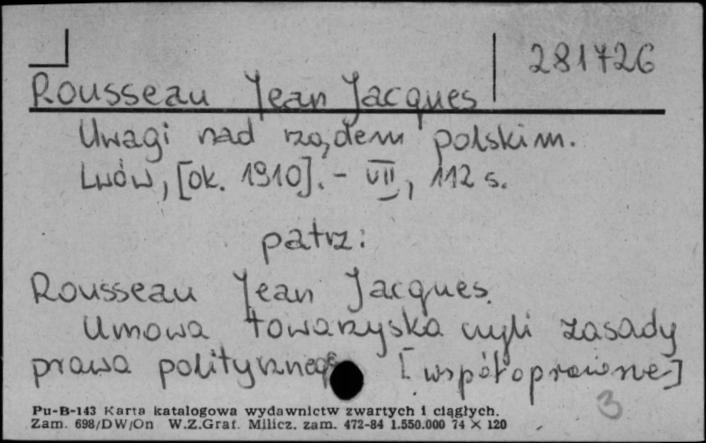 281726
Rousseau Jean Jacques
Uwagi nad rządem polskim.
Lwów, [ok. 1910]. - VII, 112 s.
patrz:
Rousseau Jean Jacques.
Umowa towarzyska czyli zasady
prawa politycznego [współoprawne]
3
Pu-B-143 Karta katalogowa wydawnictw zwartych i ciągłych.
Zam. 698/DW/On W.Z.Graf. Milicz. zam. 472-84 1.550.000 74 × 120